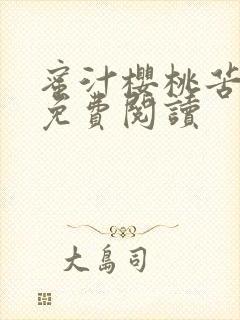 蜜汁櫻桃苦
免費閱讀
大島司